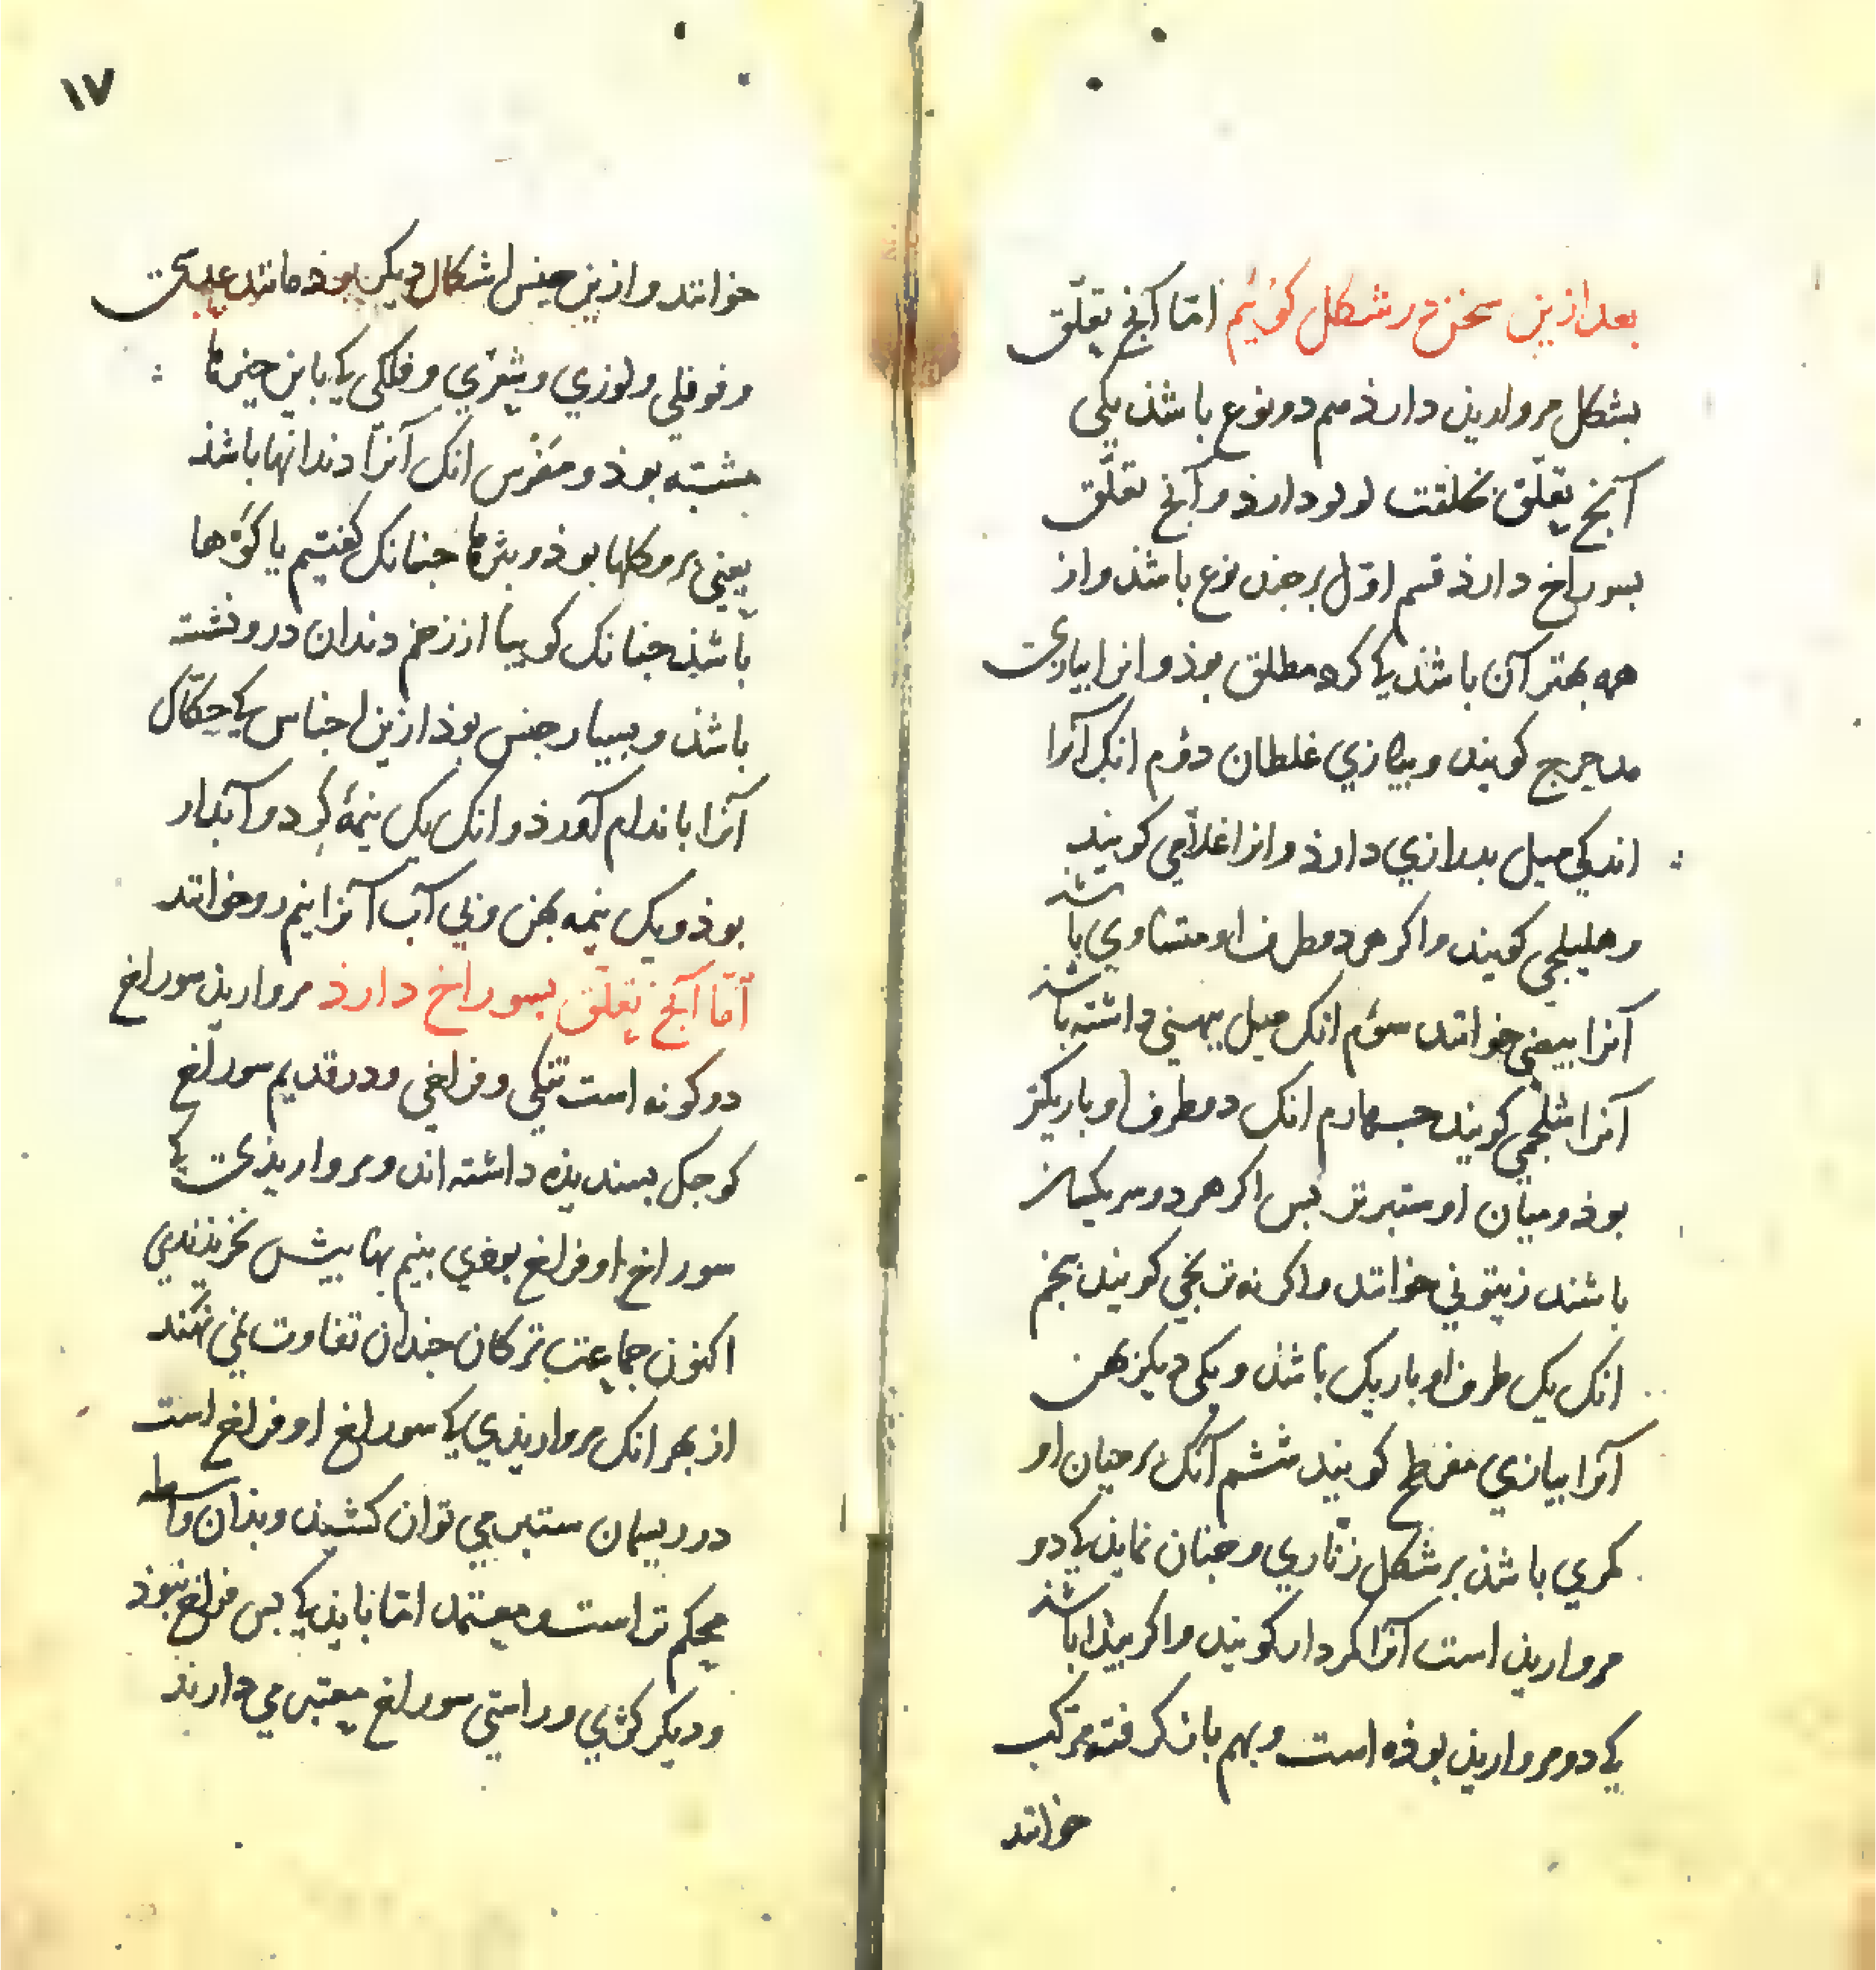 بعد ازین سخن در شکل کوئیم امّا آنج تعلّق
بشکل مروارید دارذ هم دو نوع باشذ یکی
آنج تعلّق بخلقت لولو دارذ و آنج تعلّق
بسوراخ دارذ قسم اوّل بر جند نوع باشذ و از
همه بهتر آن باشذ کی کرد مطلق بوذ و انرا بپارسی
مدحرج کویند و بتازی غلطان دوّم انک آنرا
اندکی میل بدرازی دارذ و انرا غلامی کویند
و هلیلجی کویند و اکر هر دو طرف او متساوی باشذ
آنرا بیضی خوانند سوّم انک میل ببهنی داشته باشذ
آنرا شلجمی کویند جهارم انک دو طرف او باریکتر
بوذ و میان او ستبرتر بس اکر هر دو سر یکسان
باشند زیتونی خوانند و اکر نه ترنجی کویند بنجم
انک یک طرف او باریک باشد و یکی دیکر بهن
آنرا بتازی مفرطح کویند ششم آنک بر میان او
کمری باشذ بر شکل زنّاری و جنان نماید کی دو
مروارید است آنرا کمردار کویند و اکر بیدا باشذ
کی دو مروارید بوذه است و بهم باز کرفته مرکّب
خوانند
۱۷
خوانند و ازین جنس اشکال دیکر بوذ مانند عدسی
و فوفلی و لوزی و شعری و فلکی کی باین جیزها
مشبّه بوذ و مضرّس انک آنرا دندانها باشذ
یعنی برمکلها بوذ و بثرها جنانک کفتیم یا کوها
باشذ جنانک کوییا از زخم دندان درو نشسته
باشذ و بسیار جنس بوذ ازین اجناس کی حکّاک
آنرا باندام آورذ و انک یک نیمهٔ کرد و آبدار
بوذ و یک نیمه بهن و بی آب آنرا نیم رو خوانند
امّا آنج تعلّق بسوراخ دارذ مروارید سوراخ
دو کونه است تنکی و فراخی و در قدیم سوراخ
کوجک بسندیذه داشته اند و مرواریذی کی
سوراخ او فراخ بوذی بنیم بها بیش نخریذندی
اکنون جماعت ترکان جندان تفاوت نمی نهند
از بهر انک مرواریدی کی سوراخ او فراخ است
در ریسمان ستبر می توان کشید و بذان واسطه
محکم تر است و معتمد امّا نباید کی بس فراخ نبوذ
و دیکر کژی و راستی سوراخ معتبر می دارند